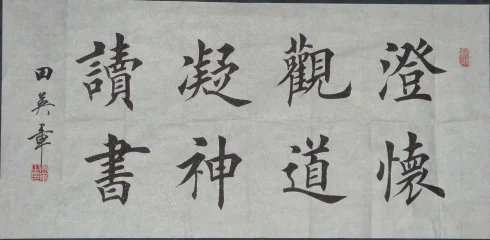 澄懷
觀道
凝神
讀書
田英章